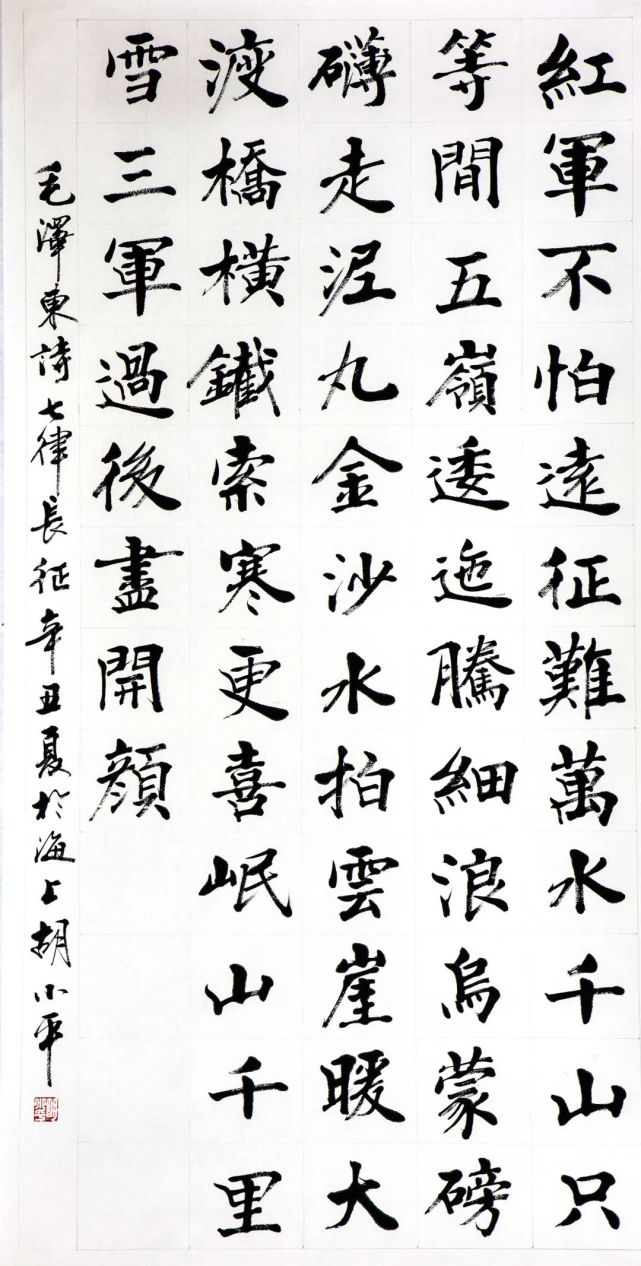 紅軍不怕遠征難萬水千山只
等閒五嶺逶迤騰細浪烏蒙磅
礴走泥丸金沙水拍雲崖暖大
渡橋橫鐵索寒更喜岷山千里
雪三軍過後盡開顔
毛澤東詩七律長征辛丑夏於海上胡小平